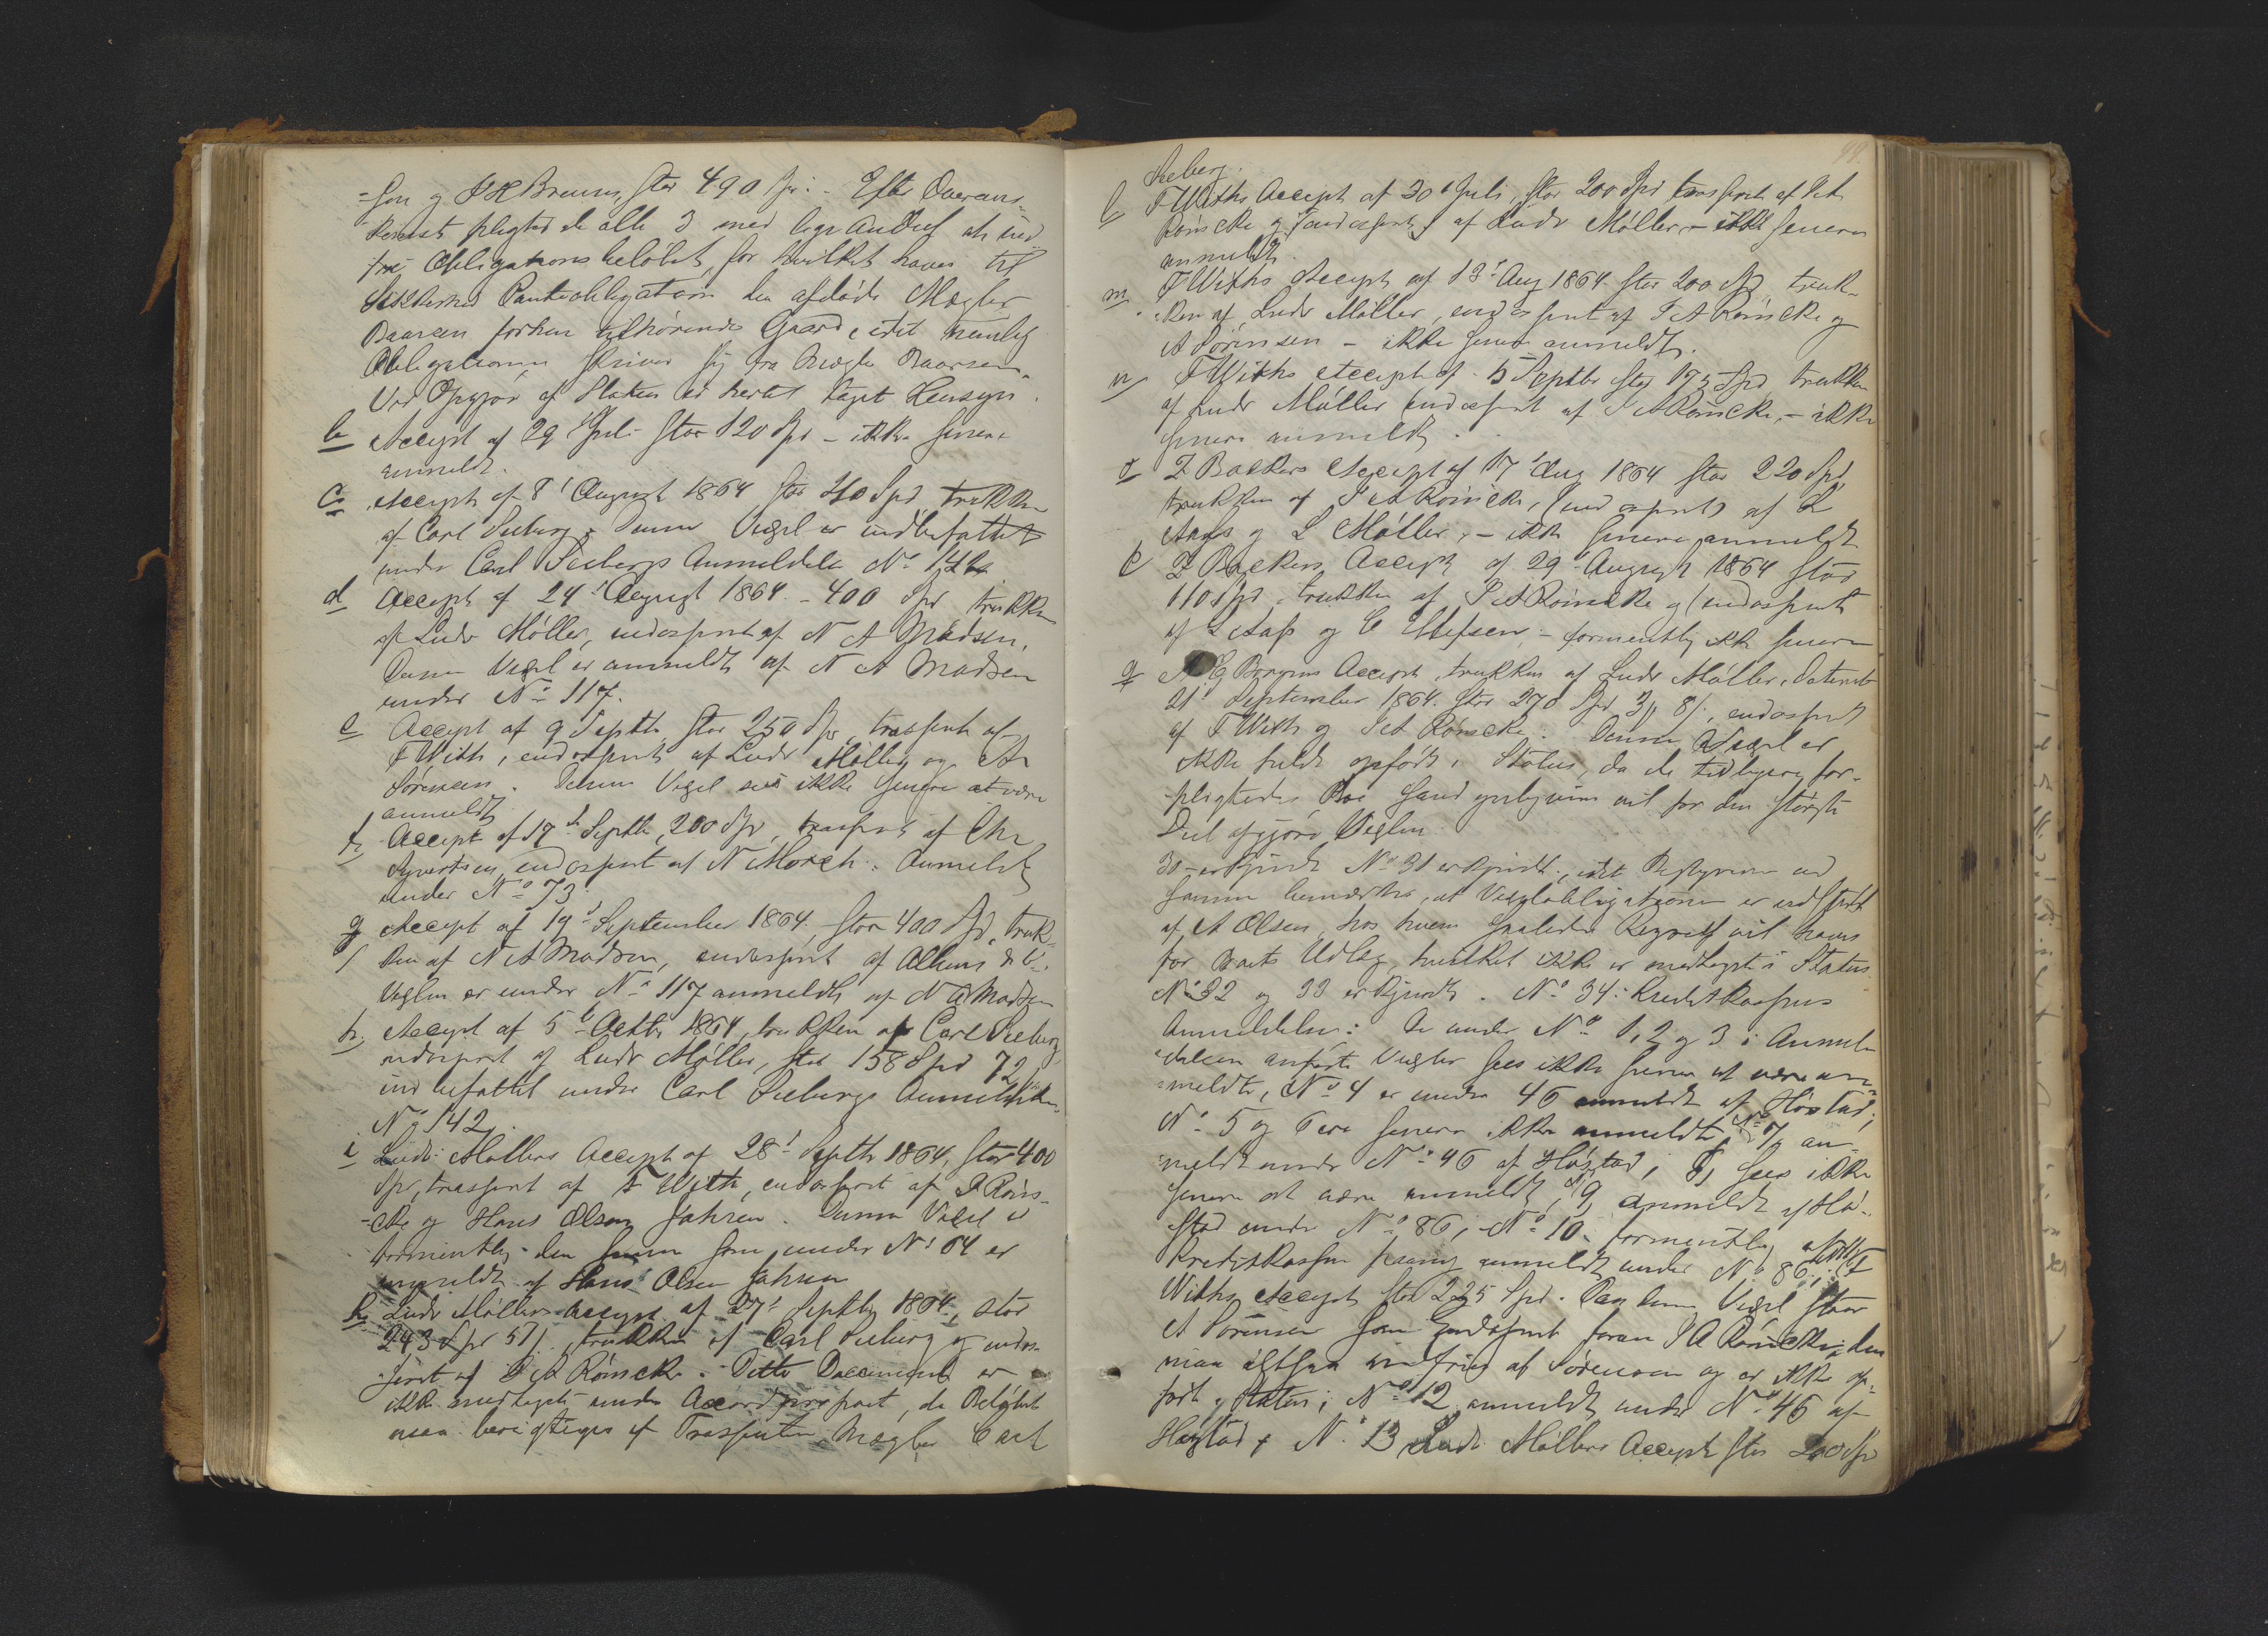 -sen og J H Bruuns, stor 490 Spd. - Efter Overens-
komst pligted de alle 3 med lige Andeel at ind-
fri Obligationsbeløbet, for hvilket haves til
Sikkerhed Panteobligation den afdøde Mægler
Baarsen forhen tilhørende Gaard, idet nemlig
Obligationen skriver sig fra Mægler Baarsen.
Ved Opgjør af Status er hertil taget Hensyn.
b Accept af 29 Juli stor 120 Spd - ikke senere
anmeldt.
c. Accept af 8' August 1864 stor 40 Spd trukken
af Carl Seeberg. Denne Vexel er indbefattet
under Carl Seebergs Anmeldelse No 142
d Accept af 24' August 1864 - 400 Spd trukken
af Ludv Møller, endosseret af N A Madsen.
Denne Vexel er anmeldt af N A Madsen
under No 117.
e Accept af 9 Septbr stor 250 Spd, trasseret af
F With, endosseret af Ludv Møller og A
Sørensen. Denne Vexel sees ikke senere at være
anmeldt
f. Accept af 19de Septbr, 200 Spd, trasseret af Chr
endosseret af N Morch. Anmeldt
under No 73.
g Accept af 19' September 1864 stor 400 Spd, truk-
ken af N A Madsen, endosseret af
Vexlen er under No 117 anmeldt af N A Madsen
h. Accept af 5' Octbr 1864, trukken af Carl Seeberg
endosseret af Ludv Møller, stor 158 Spd 72
indbefattet under Carl Seebergs Anmeldelse
No 142.
i Ludv. Møllers Accept af 28' Septbr 1864, stor 400
Spd, trasseret af F With, endosseret af J Røins-
-cke og Hans Olsen Jahren. Denne Vexel er
formentlig den samme som under No 64 er
anmeldt af Hans Olsen Jahren
k. Ludv Møllers Accept af 27' Septbr 1864, stor
243 Spd 57 trukken af Carl Seeberg og endos-
seret af J A Røinscke. Dette Document er
ikke medtaget under da Beløbet
maa berigtiges af Trassenten Mægler Carl
Seeberg.
l F Withs Accept af 30' Juli, stor 200 Spd trasseret af J A
Røinscke og endosseret af Ludv Møller - ikke senere
anmeldt.
m F Withs Accept af 13' Aug 1864 stor 200 Spd truk-
ken af Ludv Møller, endosseret af J A Røinscke og
A Sørensen - ikke senere anmeldt.
n F Withs Accept af 5 Septbr stor 175 Spd trukken
af Ludv Møller endosseret af J A Røinscke, - ikke
senere anmeldt.
o Z Backers Accept af 17' Aug 1864 stor 220 Spd,
trukken af J A Røinscke, endosseret af L
Aass og L Møller, - ikke senere anmeldt
p Z Backers Accept af 29' August 1864 stor
110 Spd, trukken af J A Røinscke og endosseret
af L Aass og C Ellefsen - formentlig ikke senere
q Accept, trukken af Ludv Møller, dateret
21' September 1864 stor 270 Spd 3 8, endosseret
af F With og J A Røinscke. Denne Vexel er
ikke fuldt opført i Status, da de tidligere for-
-pligtedes Boe sandsynligviis vil for den største
Deel afgjøre Vexlen.
30 - erkjendt No 31 erkjendt, idet Bestyreren ved
samme bemærker, at Vexelobligationen er udstedt
af A Olsen, hos hvem saaledes Regress vil haves
for Boets Udlæg, hvilket ikke er medtaget i Status
No 32 og 33 erkjendt. No 34: Kreditkassens
Anmeldelse: De under No 1, 2 og 3 i Anmel-
delsen anførte Vexler sees ikke senere at være an-
meldt, No 4 er under 46 anmeldt af Høstad;
No 5 og 6 ere senere ikke anmeldt, No 7, an-
meldt under No 46 af Høstad; 8, sees ikke
senere at være anmeldt, 9, anmeldt af Hø-
stad under No 86; No 10. formentlig af
Kreditkassen paany anmeldt under No 86; No 11 F
Withs Accept stor 225 Spd. Paa denne Vexel staar
A Sørensen som Endossent foran J A Røinscke; den
maa altsaa indfries af Sørensen og er ikke op-
ført i Status; No 12 anmeldt under No 46 af
Høstad; No 13 Ludv. Møllers Accept stor 200 Spd